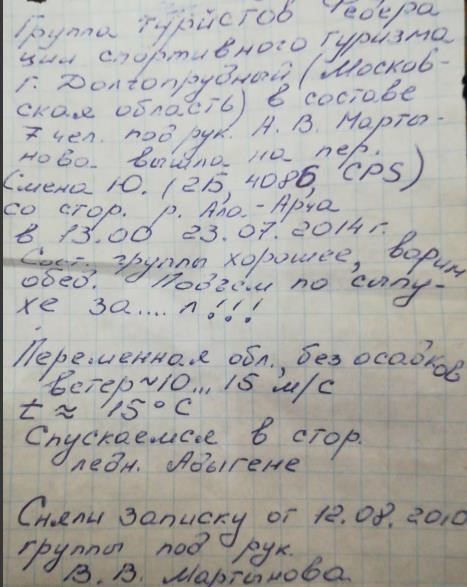 Группа туристов Федера
ции спортивного туризма
г. Долгопрудный (Москов-
ская область) в составе
7 чел. под рук. А. В. Марты-
нова вышла на пер.
Смена Ю. (2Б, 4086, GPS)
со стор. р. Ала-Арча
в 13.00 23.07.2014 г.
Сост. группы хорошее, варим
обед. Подъем по сыпу-
хе за.... л!!!
Переменная обл., без осадков
ветер ~10... 15 м/с
t ≈ 15°С
Спускаемся в стор.
ледн. Адыгене
Сняли записку от 12.08.2010
группы под рук.
В. В. Мартынова.